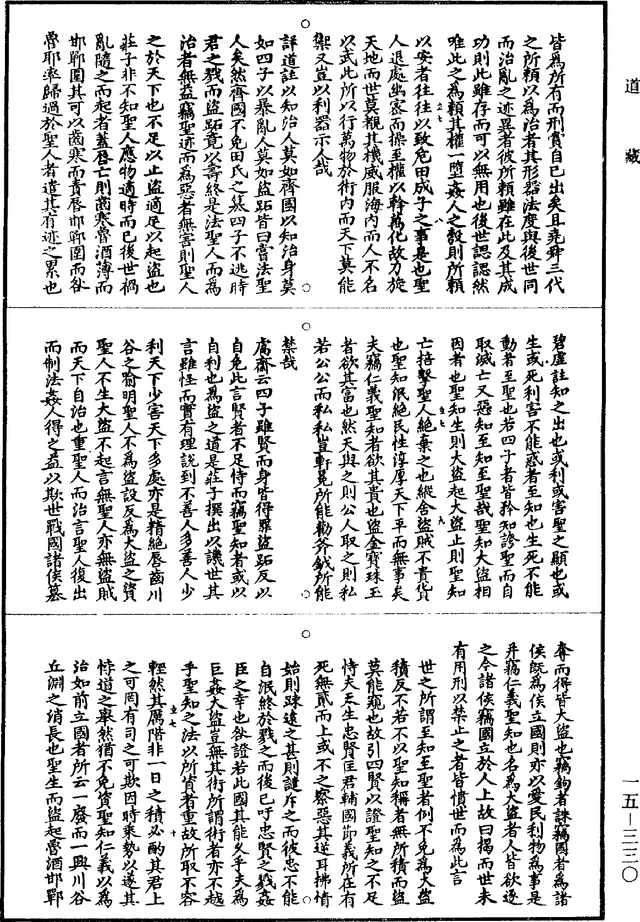 道藏
皆為所有而刑賞自己出矣且堯舜三代
之所頼以為治者其形器法度與後世同
而治亂之迹異者彼所頼雖在此及其成
功則此雖存而可以無用也後世認認然
唯此之為頼其權一墮姦人之彀則所頼
以安者往往以致危田成子之事是也聖
人退處幽密而操至權以斡萬化故力旋
天地而世莫覩其機威服海内而人不名
以武此所以行萬物於術内而天下莫能
禦又豈以利器示人哉
詳道註以知治人莫如齊國以知治身莫
如四子以暴亂人莫如盗跖皆曰嘗法聖
人矣然齊國不免田氏之簒四子不逃時
君之戮而盗跖竟以壽終是法聖人而為
治者無益竊聖迹而為惡者無害則聖人
之於天下也不足以止盗適足以起盗也
莊子非不知聖人應物適時而已後世禍
亂隨之而起者蓋唇亡則齒寒魯酒薄而
邯鄲圍其可以齒寒而責唇邯鄲圍而咎
魯耶率歸過於聖人者遣其有迹之累也
碧虚註知之出也或利或害聖之顯也或
生或死利害不能惑者至知也生死不能
動者至聖也若四子者皆矜知誇聖而自
取滅亡又惡知至知至聖哉聖知大盗相
因者也聖知生則大盗起大盗止則聖知
亡掊擊聖人絶棄之也縱舍盗賊不貴貨
也聖知泯絶民性淳厚天下平而無事矣
夫竊仁義聖知者欲其貴也盗金寶珠玉
者欲其富也然天與之則公人取之則私
若公公而私私豈軒冕所能勸斧鉞所能
禁哉
鬳齋云四子雖賢而身皆得罪盗跖反以
自免此言賢者不足恃而竊聖知者或以
自利也為盗之道是莊子撰出以譏世其
言雖怪而實有理説到不善人多善人少
利天下少害天下多處亦是精絶唇齒川
谷之喻明聖人不為盗設反為大盗之資
聖人不生大盗不起言無聖人亦無盗賊
而天下自治也重聖人而治言聖人復出
而制法姦人得之益以欺世戰國諸侯簒
奪而得皆大盗也竊鉤者誅竊國者為諸
侯既為侯立國則亦以愛民利物為事是
并竊仁義聖知也名為大盗者人皆欲逐
之今諸侯竊國立於人上故曰揭而世未
有用刑以禁止之者皆憤世而為此言
世之所謂至知至聖者例不免為大盗
積反不若不以聖知稱者無所積而盗
莫能窺也故引四賢以證聖知之不足
恃夫三生忠賢匡君輔國節義所在有
死無貳而上或不之察惡其逆耳拂情
始則踈遠之甚則譴斥之而彼忠不能
自泯終於戮之而後已吁忠賢之戮姦
臣之幸也欲證若此國其能久乎夫為
巨姦大盗豈無其術所謂術者亦不越
乎聖知之法以所資者重故所取不容
輕然其厲階非一日之積必酌其君上
之可罔有司之可欺因時乘勢以遂其
悖道之舉然猶不免資聖知仁義以為
治如前立國者所云一廢而一興川谷
丘淵之消長也聖生而盗起魯酒邯鄲
一五—三三〇